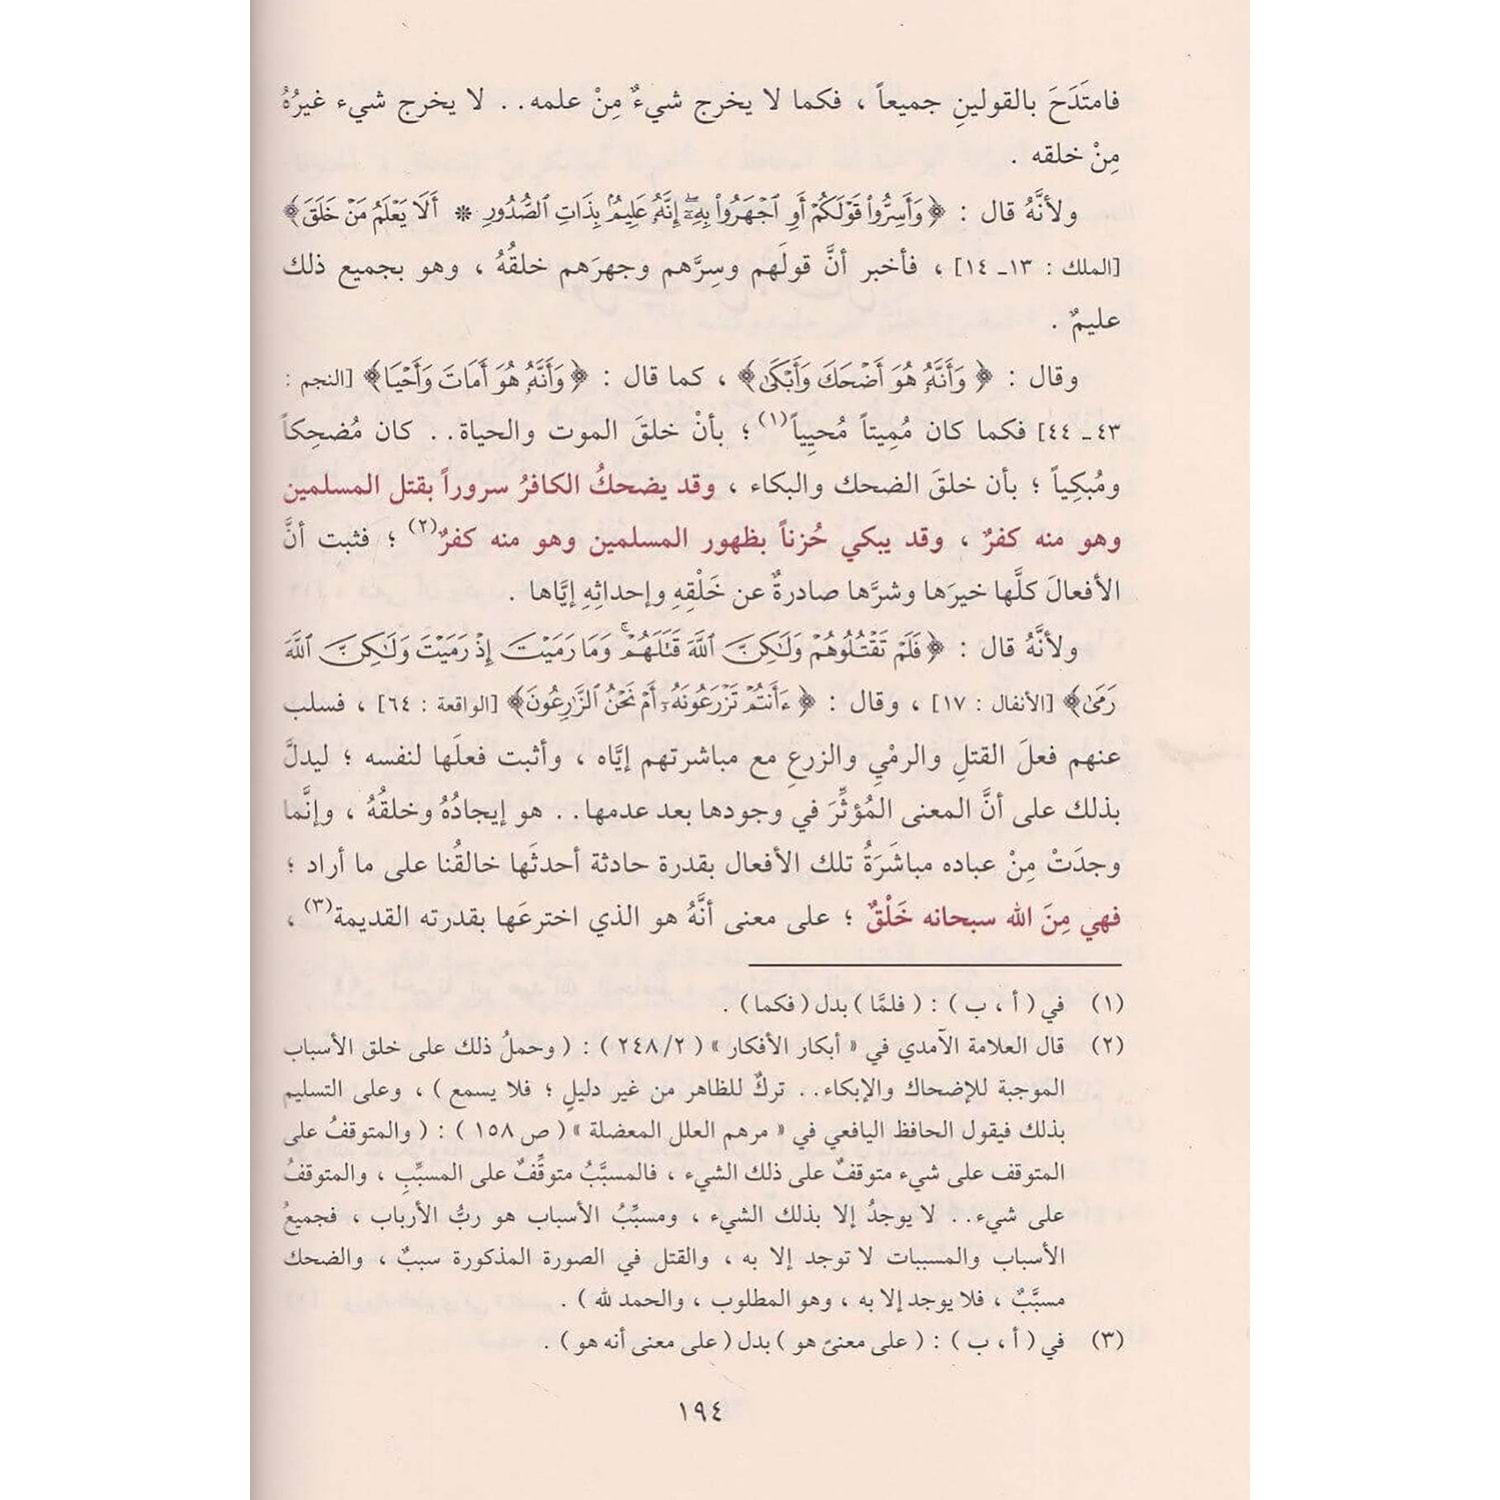 فامتَدَحَ بالقولينِ جميعاً ، فكما لا يخرج شيءٌ مِنْ علمه.. لا يخرج شيء غيرُهُ
مِنْ خلقه .
ولأنَّهُ قال : ﴿ وَأَسِرُّوا۟ قَوْلَكُمْ أَوِ ٱجْهَرُوا۟ بِهِۦٓ ۖ إِنَّهُۥ عَلِيمٌۢ بِذَاتِ ٱلصُّدُورِ * أَلَا يَعْلَمُ مَنْ خَلَقَ ﴾
[الملك : ١٣ـ ١٤] ، فأخبر أنَّ قولَهم وسِرَّهم وجهرَهم خلقُهُ ، وهو بجميع ذلك
عليمٌ .
وقال : ﴿ وَأَنَّهُۥ هُوَ أَضْحَكَ وَأَبْكَىٰ ﴾ ، كما قال : ﴿ وَأَنَّهُۥ هُوَ أَمَاتَ وَأَحْيَا ﴾ [النجم :
٤٣ـ ٤٤] فكما كان مُمِيتاً مُحيِياً(١) ؛ بأنْ خلقَ الموت والحياة.. كان مُضحِكاً
ومُبكِياً ؛ بأن خلقَ الضحك والبكاء ، وقد يضحكُ الكافرُ سروراً بقتل المسلمين
وهو منه كفرٌ ، وقد يبكي حُزناً بظهور المسلمين وهو منه كفرٌ(٢) ؛ فثبت أنَّ
الأفعالَ كلَّها خيرَها وشرَّها صادرةٌ عن خَلْقِهِ وإحداثِهِ إيَّاها .
ولأنَّهُ قال : ﴿ فَلَمْ تَقْتُلُوهُمْ وَلَٰكِنَّ ٱللَّهَ قَتَلَهُمْ ۚ وَمَا رَمَيْتَ إِذْ رَمَيْتَ وَلَٰكِنَّ ٱللَّهَ
رَمَىٰ ﴾ [الأنفال : ١٧] ، وقال : ﴿ ءَأَنتُمْ تَزْرَعُونَهُۥٓ أَمْ نَحْنُ ٱلزَّٰرِعُونَ ﴾ [الواقعة : ٦٤] ، فسلب
عنهم فعلَ القتلِ والرمْيِ والزرعِ مع مباشرتهم إيَّاه ، وأثبت فعلَها لنفسه ؛ ليدلَّ
بذلك على أنَّ المعنى المُؤثِّرَ في وجودها بعد عدمها.. هو إيجادُهُ وخلقُهُ ، وإنَّما
وجدَتْ مِنْ عباده مباشَرَةُ تلك الأفعال بقدرة حادثة أحدثَها خالقُنا على ما أراد ؛
فهي مِنَ الله سبحانه خَلْقٌ ؛ على معنى أنَّهُ هو الذي اخترعَها بقدرته القديمة(٣) ،
(١) في ( أ ، ب ) : ( فلمَّا ) بدل ( فكما ) .
(٢) قال العلامة الآمدي في « أبكار الأفكار » ( ٢/ ٢٤٨ ) : ( وحملُ ذلك على خلق الأسباب
الموجبة للإضحاك والإبكاء.. تركٌ للظاهر من غير دليلٍ ؛ فلا يسمع ) ، وعلى التسليم
بذلك فيقول الحافظ اليافعي في « مرهم العلل المعضلة » ( ص ١٥٨ ) : ( والمتوقفُ على
المتوقف على شيء متوقفٌ على ذلك الشيء ، فالمسبَّبُ متوقِّفٌ على المسبِّبِ ، والمتوقفُ
على شيء.. لا يوجدُ إلا بذلك الشيء ، ومسبِّبُ الأسباب هو ربُّ الأرباب ، فجميعُ
الأسباب والمسببات لا توجد إلا به ، والقتل في الصورة المذكورة سببٌ ، والضحك
مسبَّبٌ ، فلا يوجد إلا به ، وهو المطلوب ، والحمد لله ) .
(٣) في ( أ ، ب ) : ( على معنىً هو ) بدل ( على معنى أنه هو ) .
١٩٤